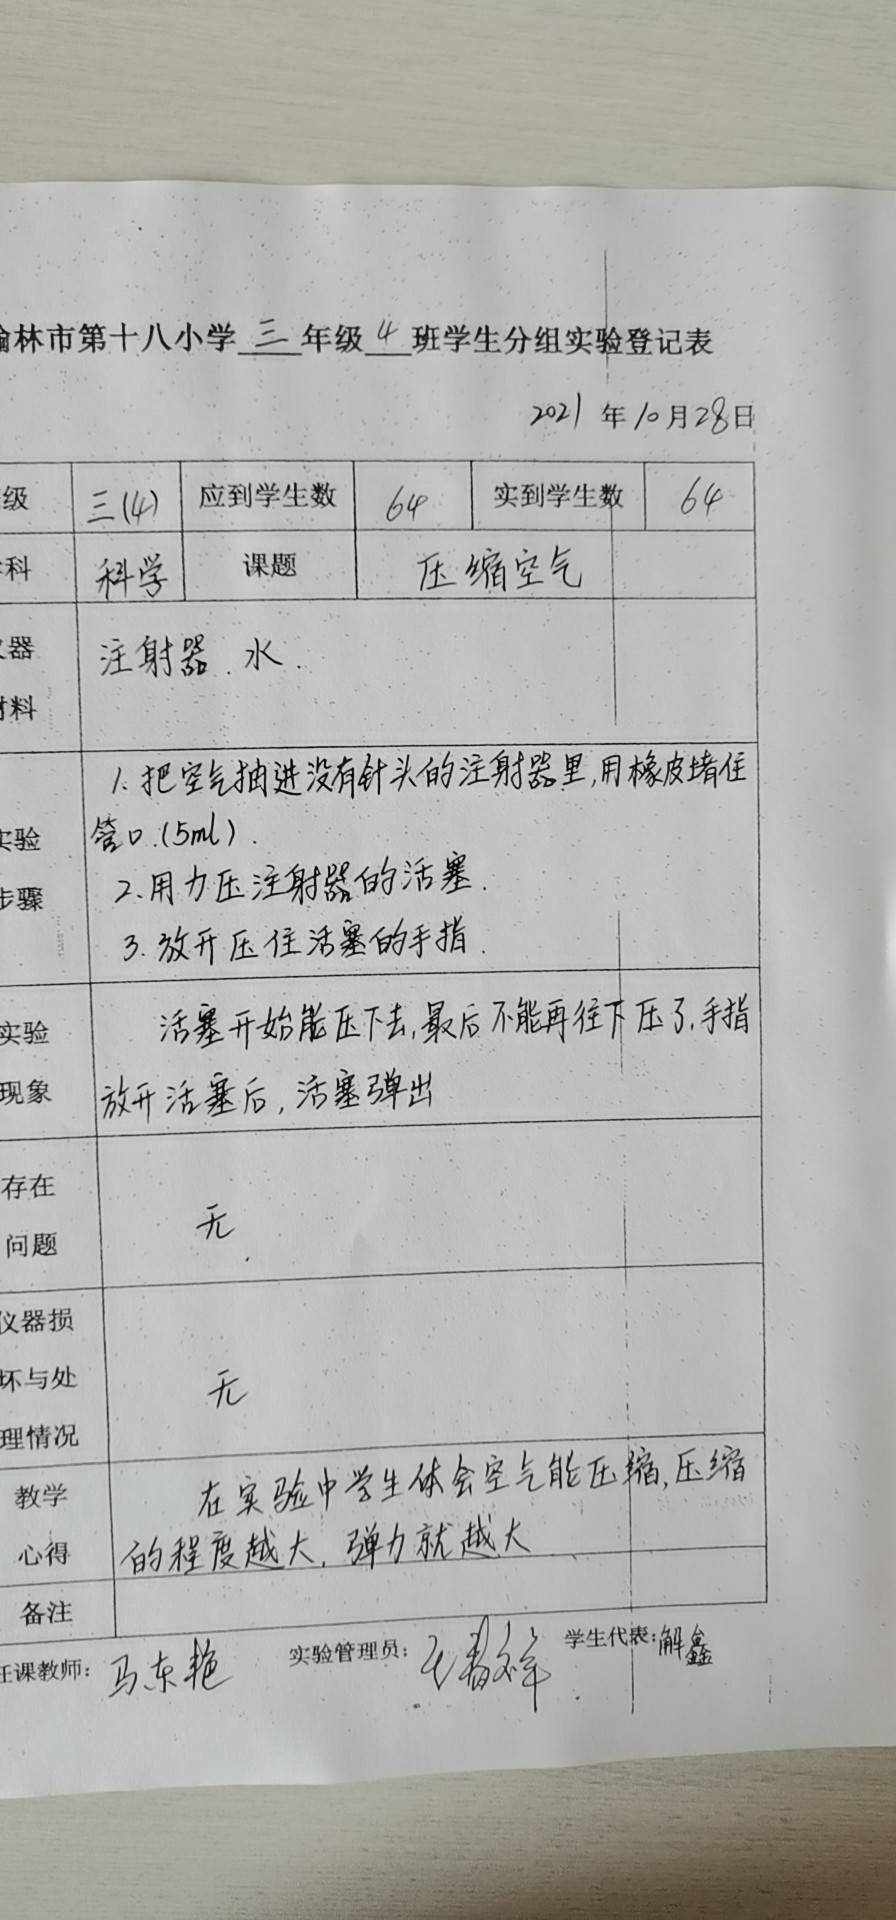 榆林市第十八小学三年级4班学生分组实验登记表
2021年10月28日
级 三(4) 应到学生数 64 实到学生数 64
科 科学 课题 压缩空气
仪器
材料
注射器、水.
实验
步骤
1、把空气抽进没有针头的注射器里,用橡皮堵住
管口.(5ml).
2、用力压注射器的活塞.
3、放开压住活塞的手指.
实验
现象
活塞开始能压下去,最后不能再往下压了,手指
放开活塞后,活塞弹出
存在
问题
无
仪器损
坏与处
理情况
无
教学
心得
在实验中学生体会空气能压缩,压缩
的程度越大,弹力就越大
备注
任课教师: 马东艳 实验管理员: 学生代表:解鑫